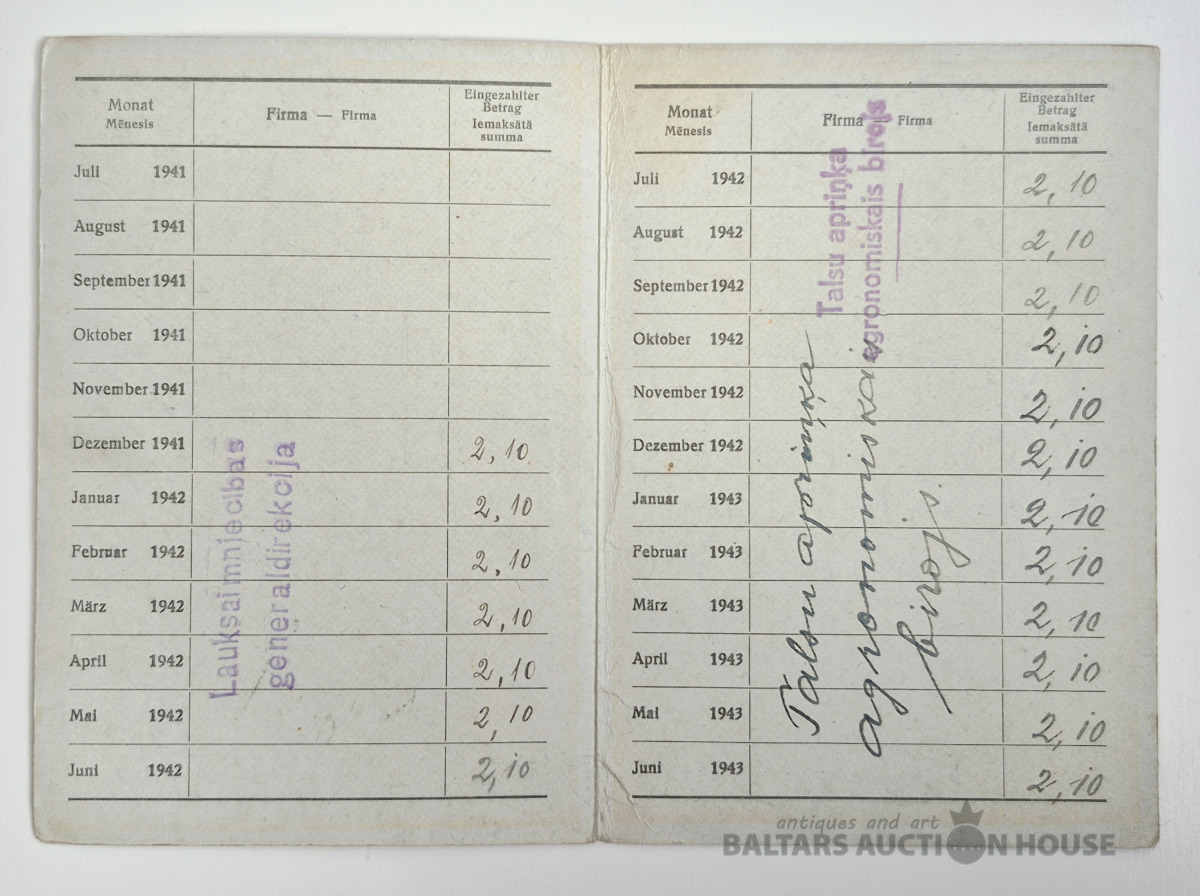 Monat
Mēnesis
Firma — Firma
Eingezahlter
Betrag
Iemaksātā
summa
Juli 1941
August 1941
September 1941
Oktober 1941
November 1941
Dezember 1941 2,10
Januar 1942 2,10
Februar 1942 2,10
März 1942 2,10
April 1942 2,10
Mai 1942 2,10
Juni 1942 2,10
Lauksaimniecības
ģenerāldirekcija
Monat
Mēnesis
Firma — Firma
Eingezahlter
Betrag
Iemaksātā
summa
Juli 1942 2,10
August 1942 2,10
September 1942 2,10
Oktober 1942 2,10
November 1942 2,10
Dezember 1942 2,10
Januar 1943 2,10
Februar 1943 2,10
März 1943 2,10
April 1943 2,10
Mai 1943 2,10
Juni 1943 2,10
Talsu apriņķa
agronomiskais birojs
Talsu apriņķa
agronomiskais
birojs.
antiques and art
BALTARS AUCTION HOUSE